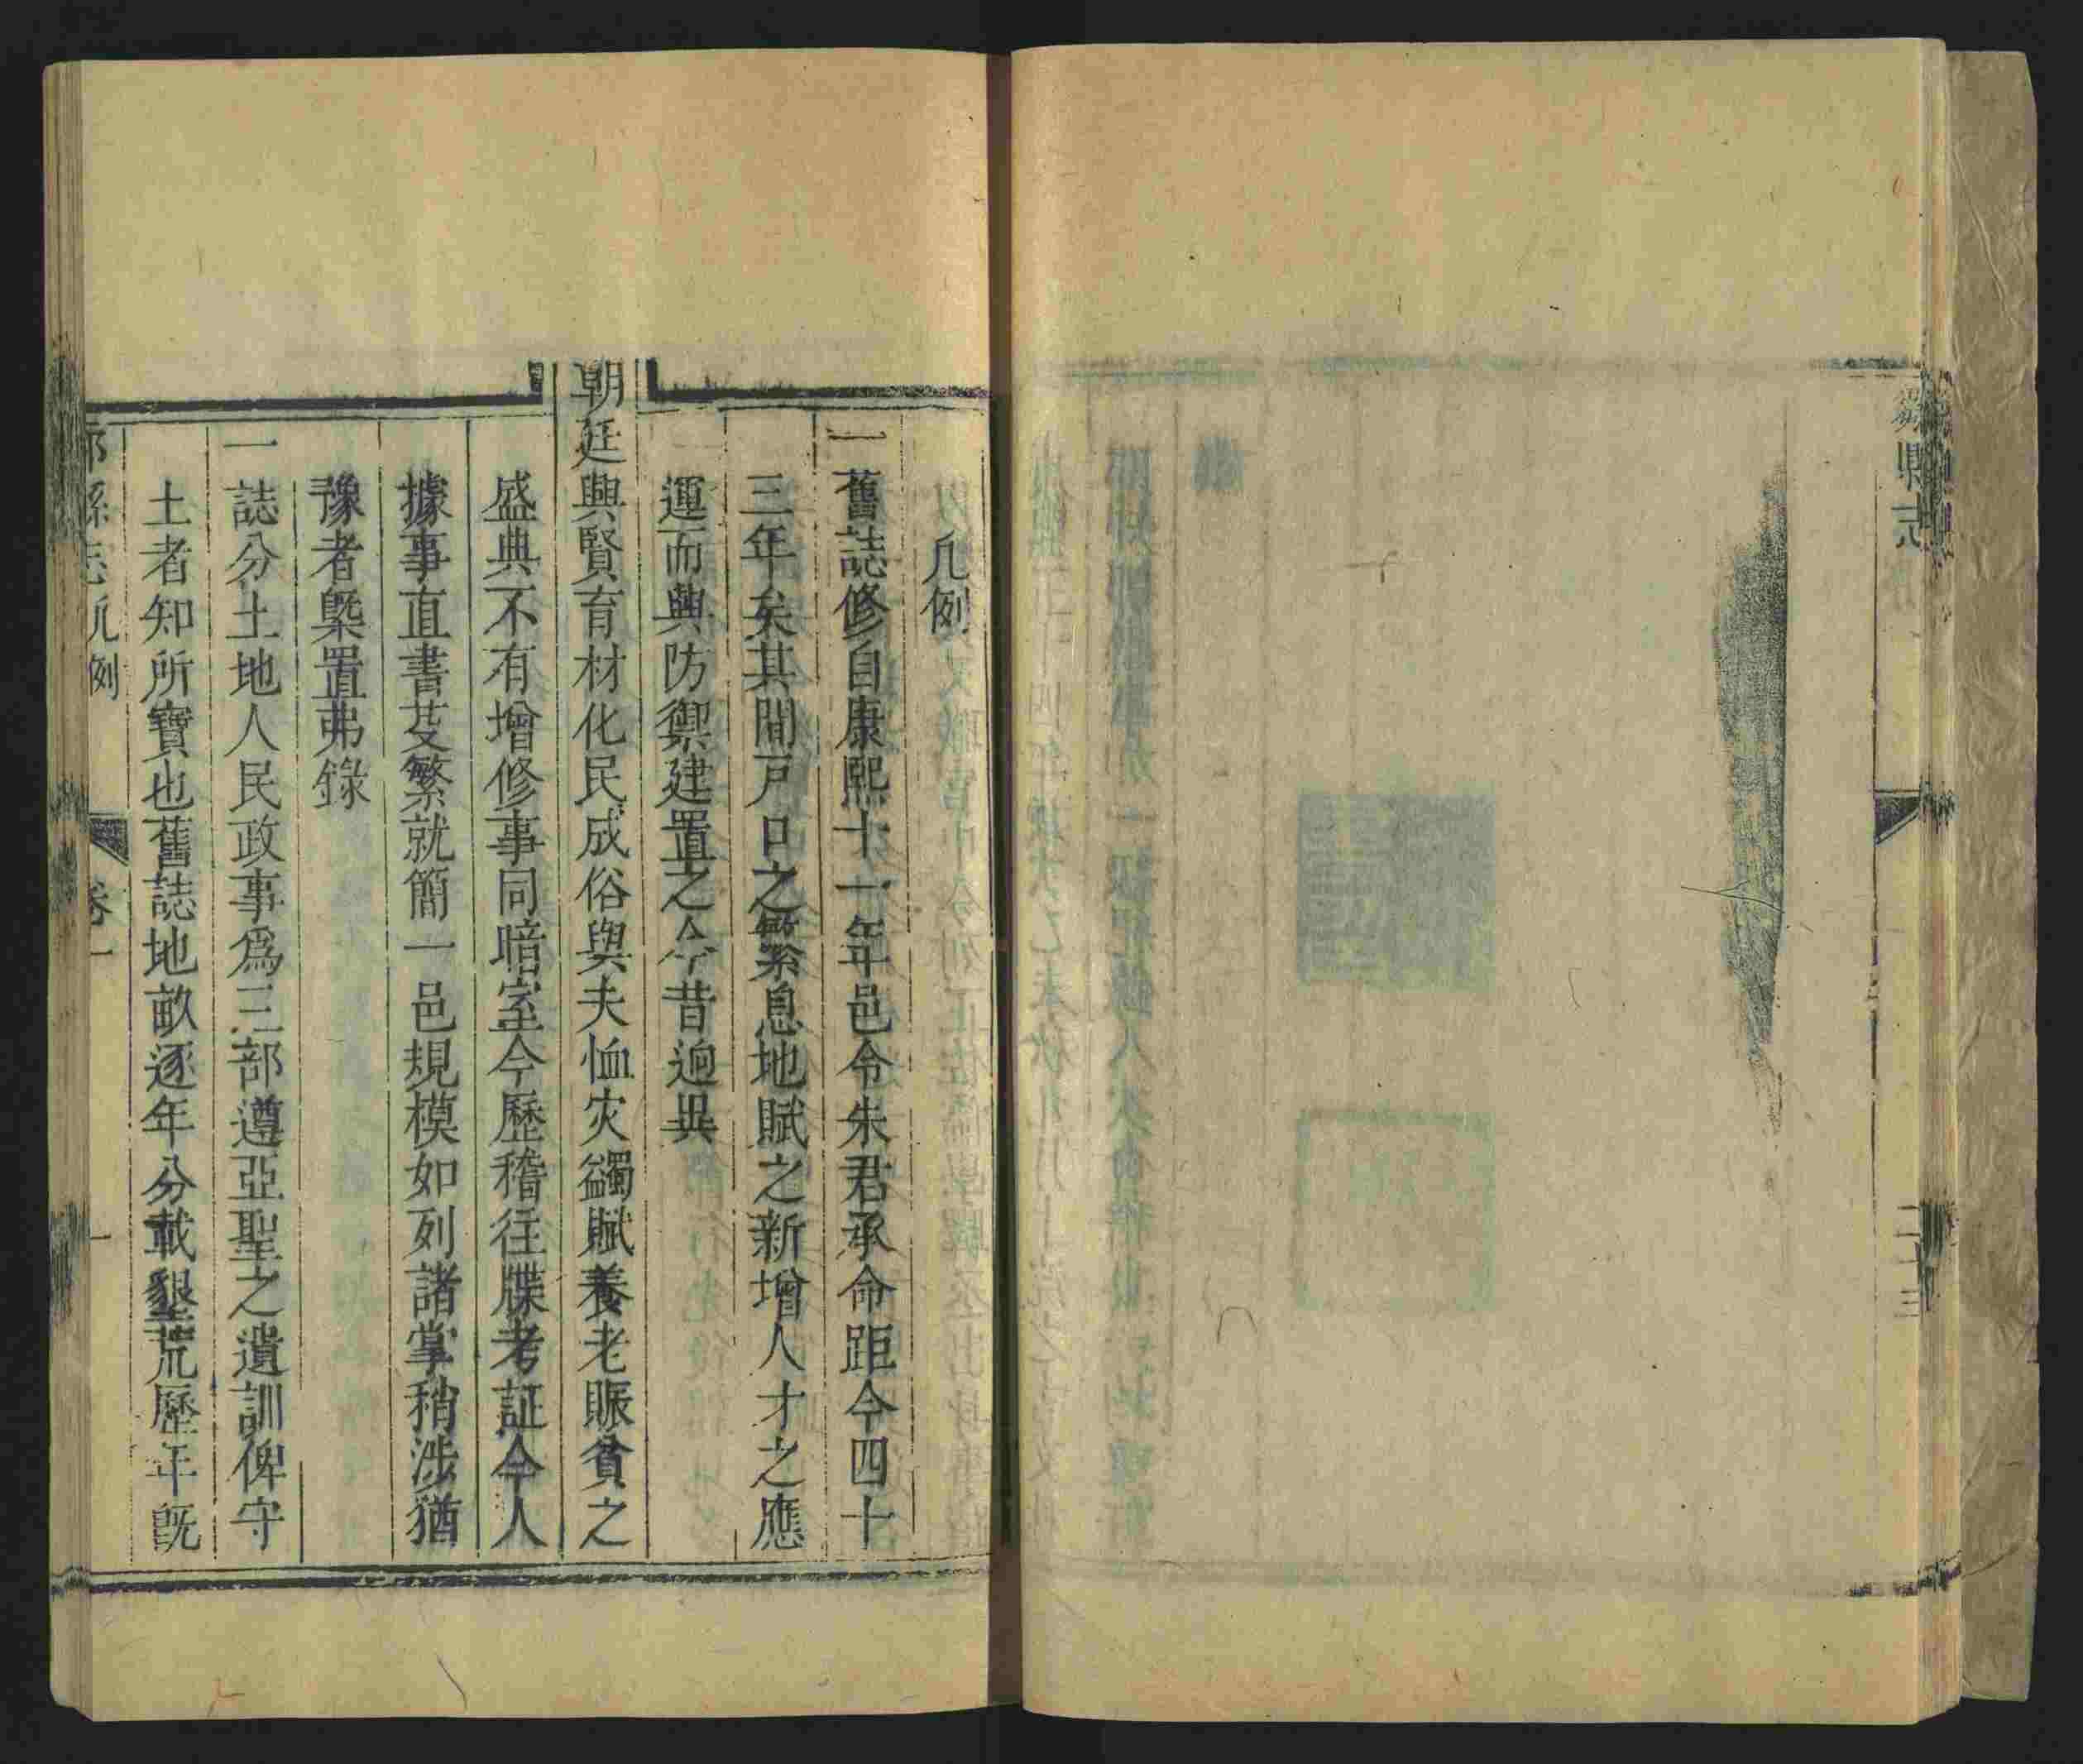 縣志
二十三
凡例
一舊誌修自康熙十一年邑令朱君承命距今四十
三年矣其間戸口之繁息地賦之新增人才之應
運而興防禦建置之今昔迥異
朝廷興賢育材化民成俗與夫恤灾蠲賦養老賑貧之
盛典不有增修事同暗室今歷稽往牒考証今人
據事直書芟繁就簡一邑規模如列諸掌稍涉猶
豫者槩置弗錄
一誌分土地人民政事爲三部遵亞聖之遺訓俾守
土者知所寶也舊誌地畝逐年分載墾荒歷年既
縣志凡例 卷一 一